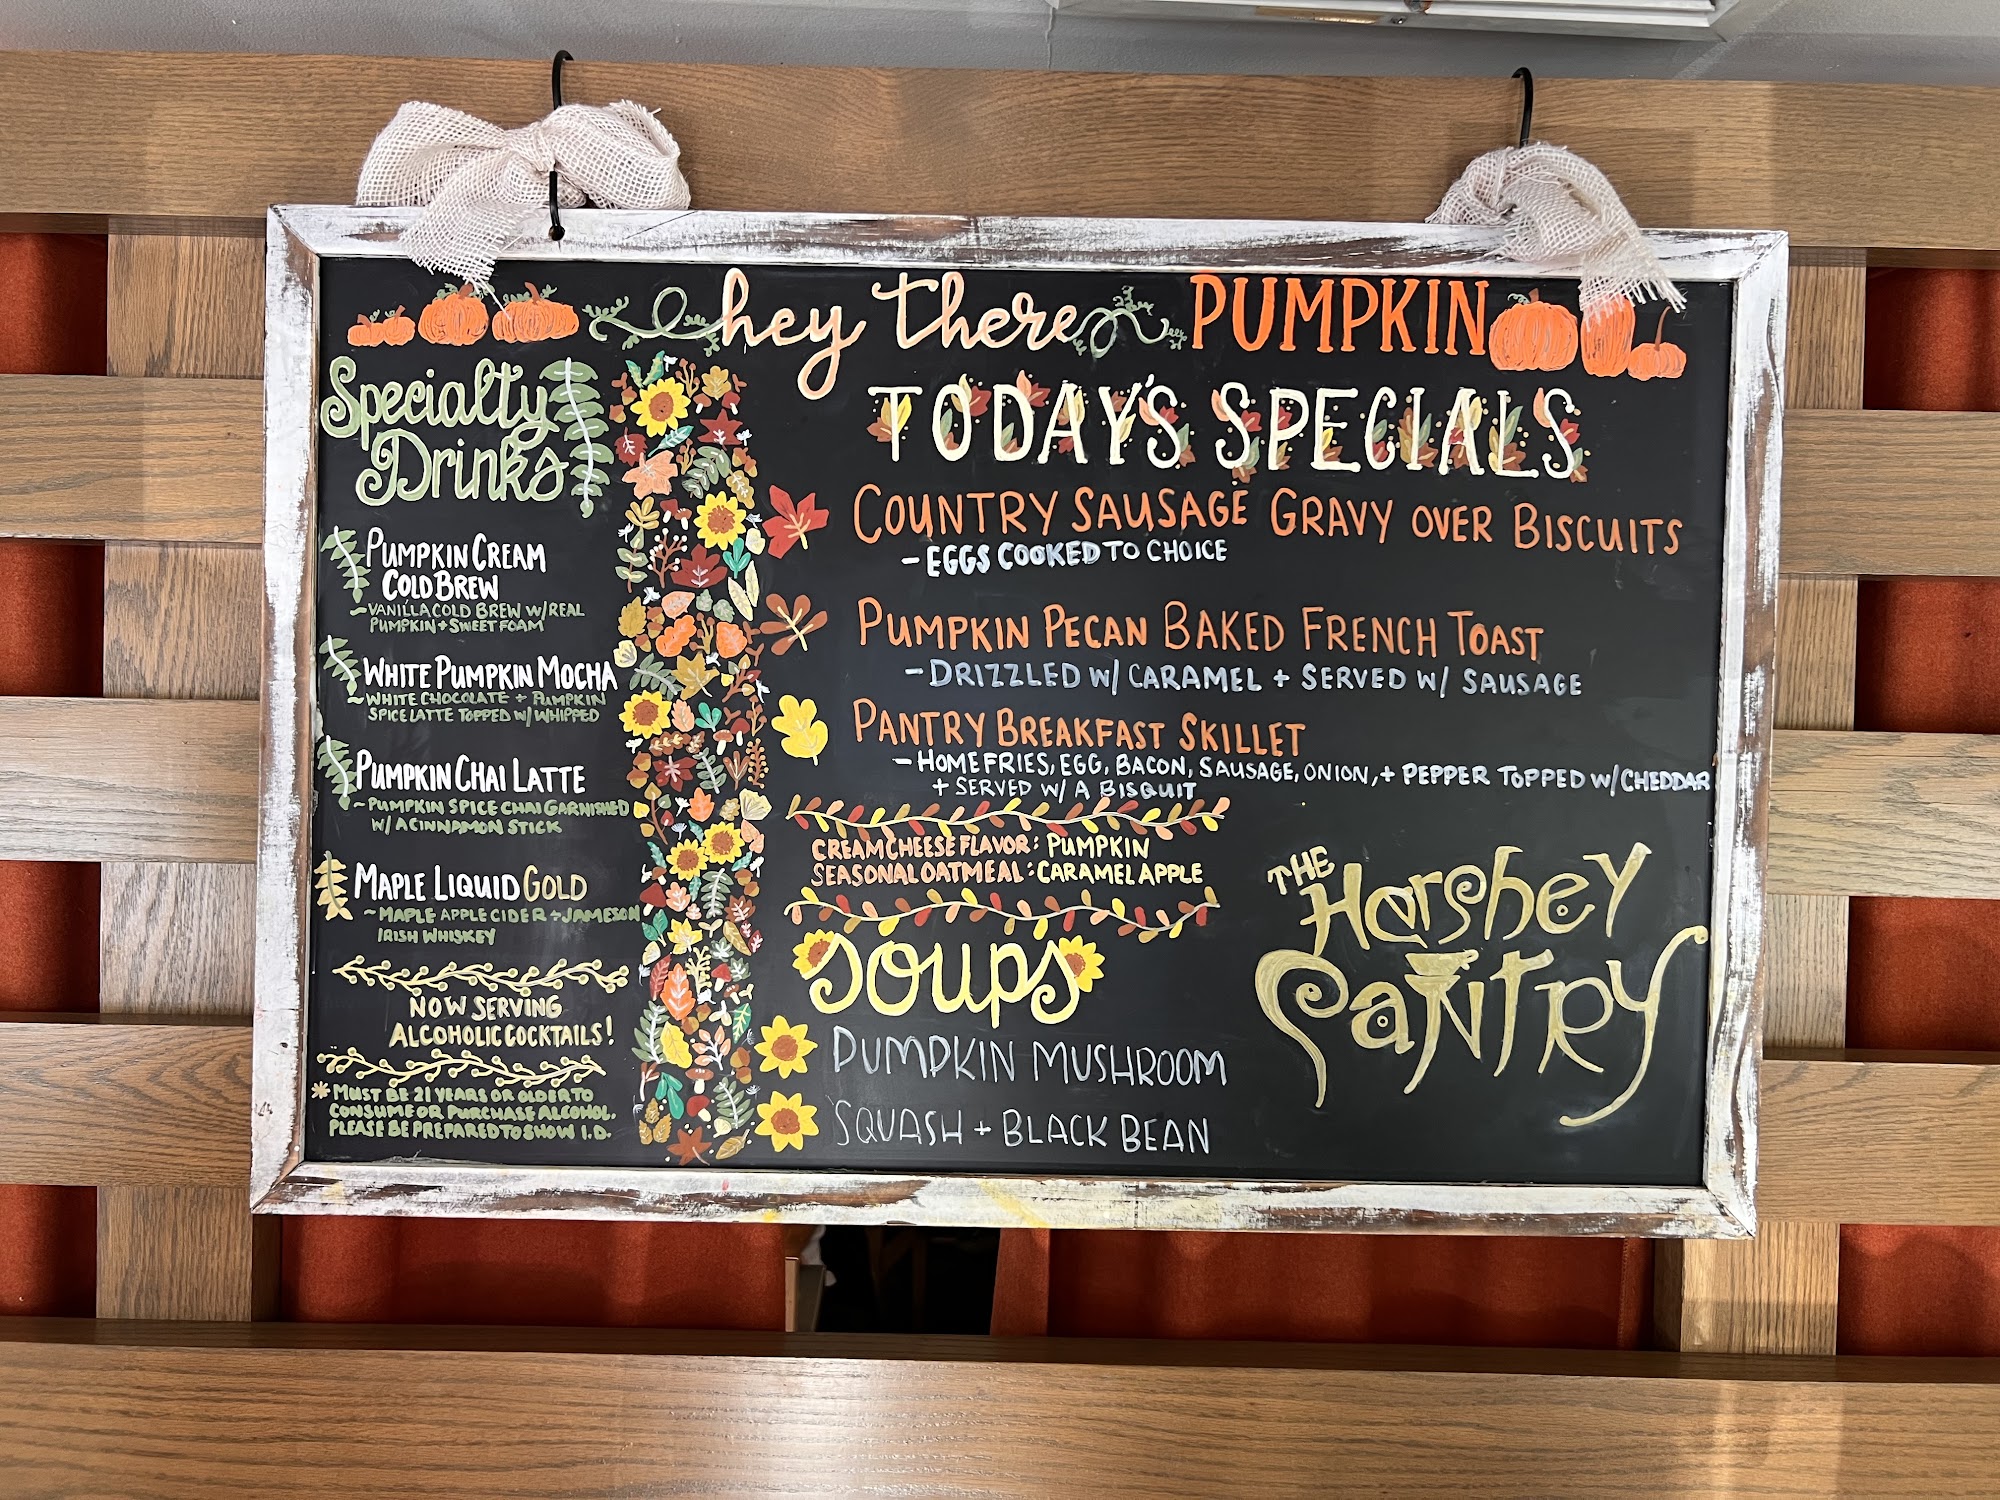 hey there PUMPKIN
Specialty
Drinks
PUMPKIN CREAM
COLD BREW
~VANILLA COLD BREW W/REAL
PUMPKIN + SWEET FOAM
WHITE PUMPKIN MOCHA
~WHITE CHOCOLATE + PUMPKIN
SPICE LATTE TOPPED W/ WHIPPED
PUMPKIN CHAI LATTE
~PUMPKIN SPICE CHAI GARNISHED
W/ A CINNAMON STICK
MAPLE LIQUID GOLD
~MAPLE APPLE CIDER + JAMESON
IRISH WHISKEY
NOW SERVING
ALCOHOLIC COCKTAILS!
*MUST BE 21 YEARS OR OLDER TO
CONSUME OR PURCHASE ALCOHOL.
PLEASE BE PREPARED TO SHOW I.D.
TODAY'S SPECIALS
COUNTRY SAUSAGE GRAVY OVER BISCUITS
-EGGS COOKED TO CHOICE
PUMPKIN PECAN BAKED FRENCH TOAST
-DRIZZLED W/ CARAMEL + SERVED W/ SAUSAGE
PANTRY BREAKFAST SKILLET
-HOMEFRIES, EGG, BACON, SAUSAGE, ONION, + PEPPER TOPPED W/CHEDDAR
+ SERVED W/ A BISQUIT
CREAM CHEESE FLAVOR: PUMPKIN
SEASONAL OATMEAL: CARAMEL APPLE
soups
PUMPKIN MUSHROOM
SQUASH + BLACK BEAN
THE Hershey
PANTRY